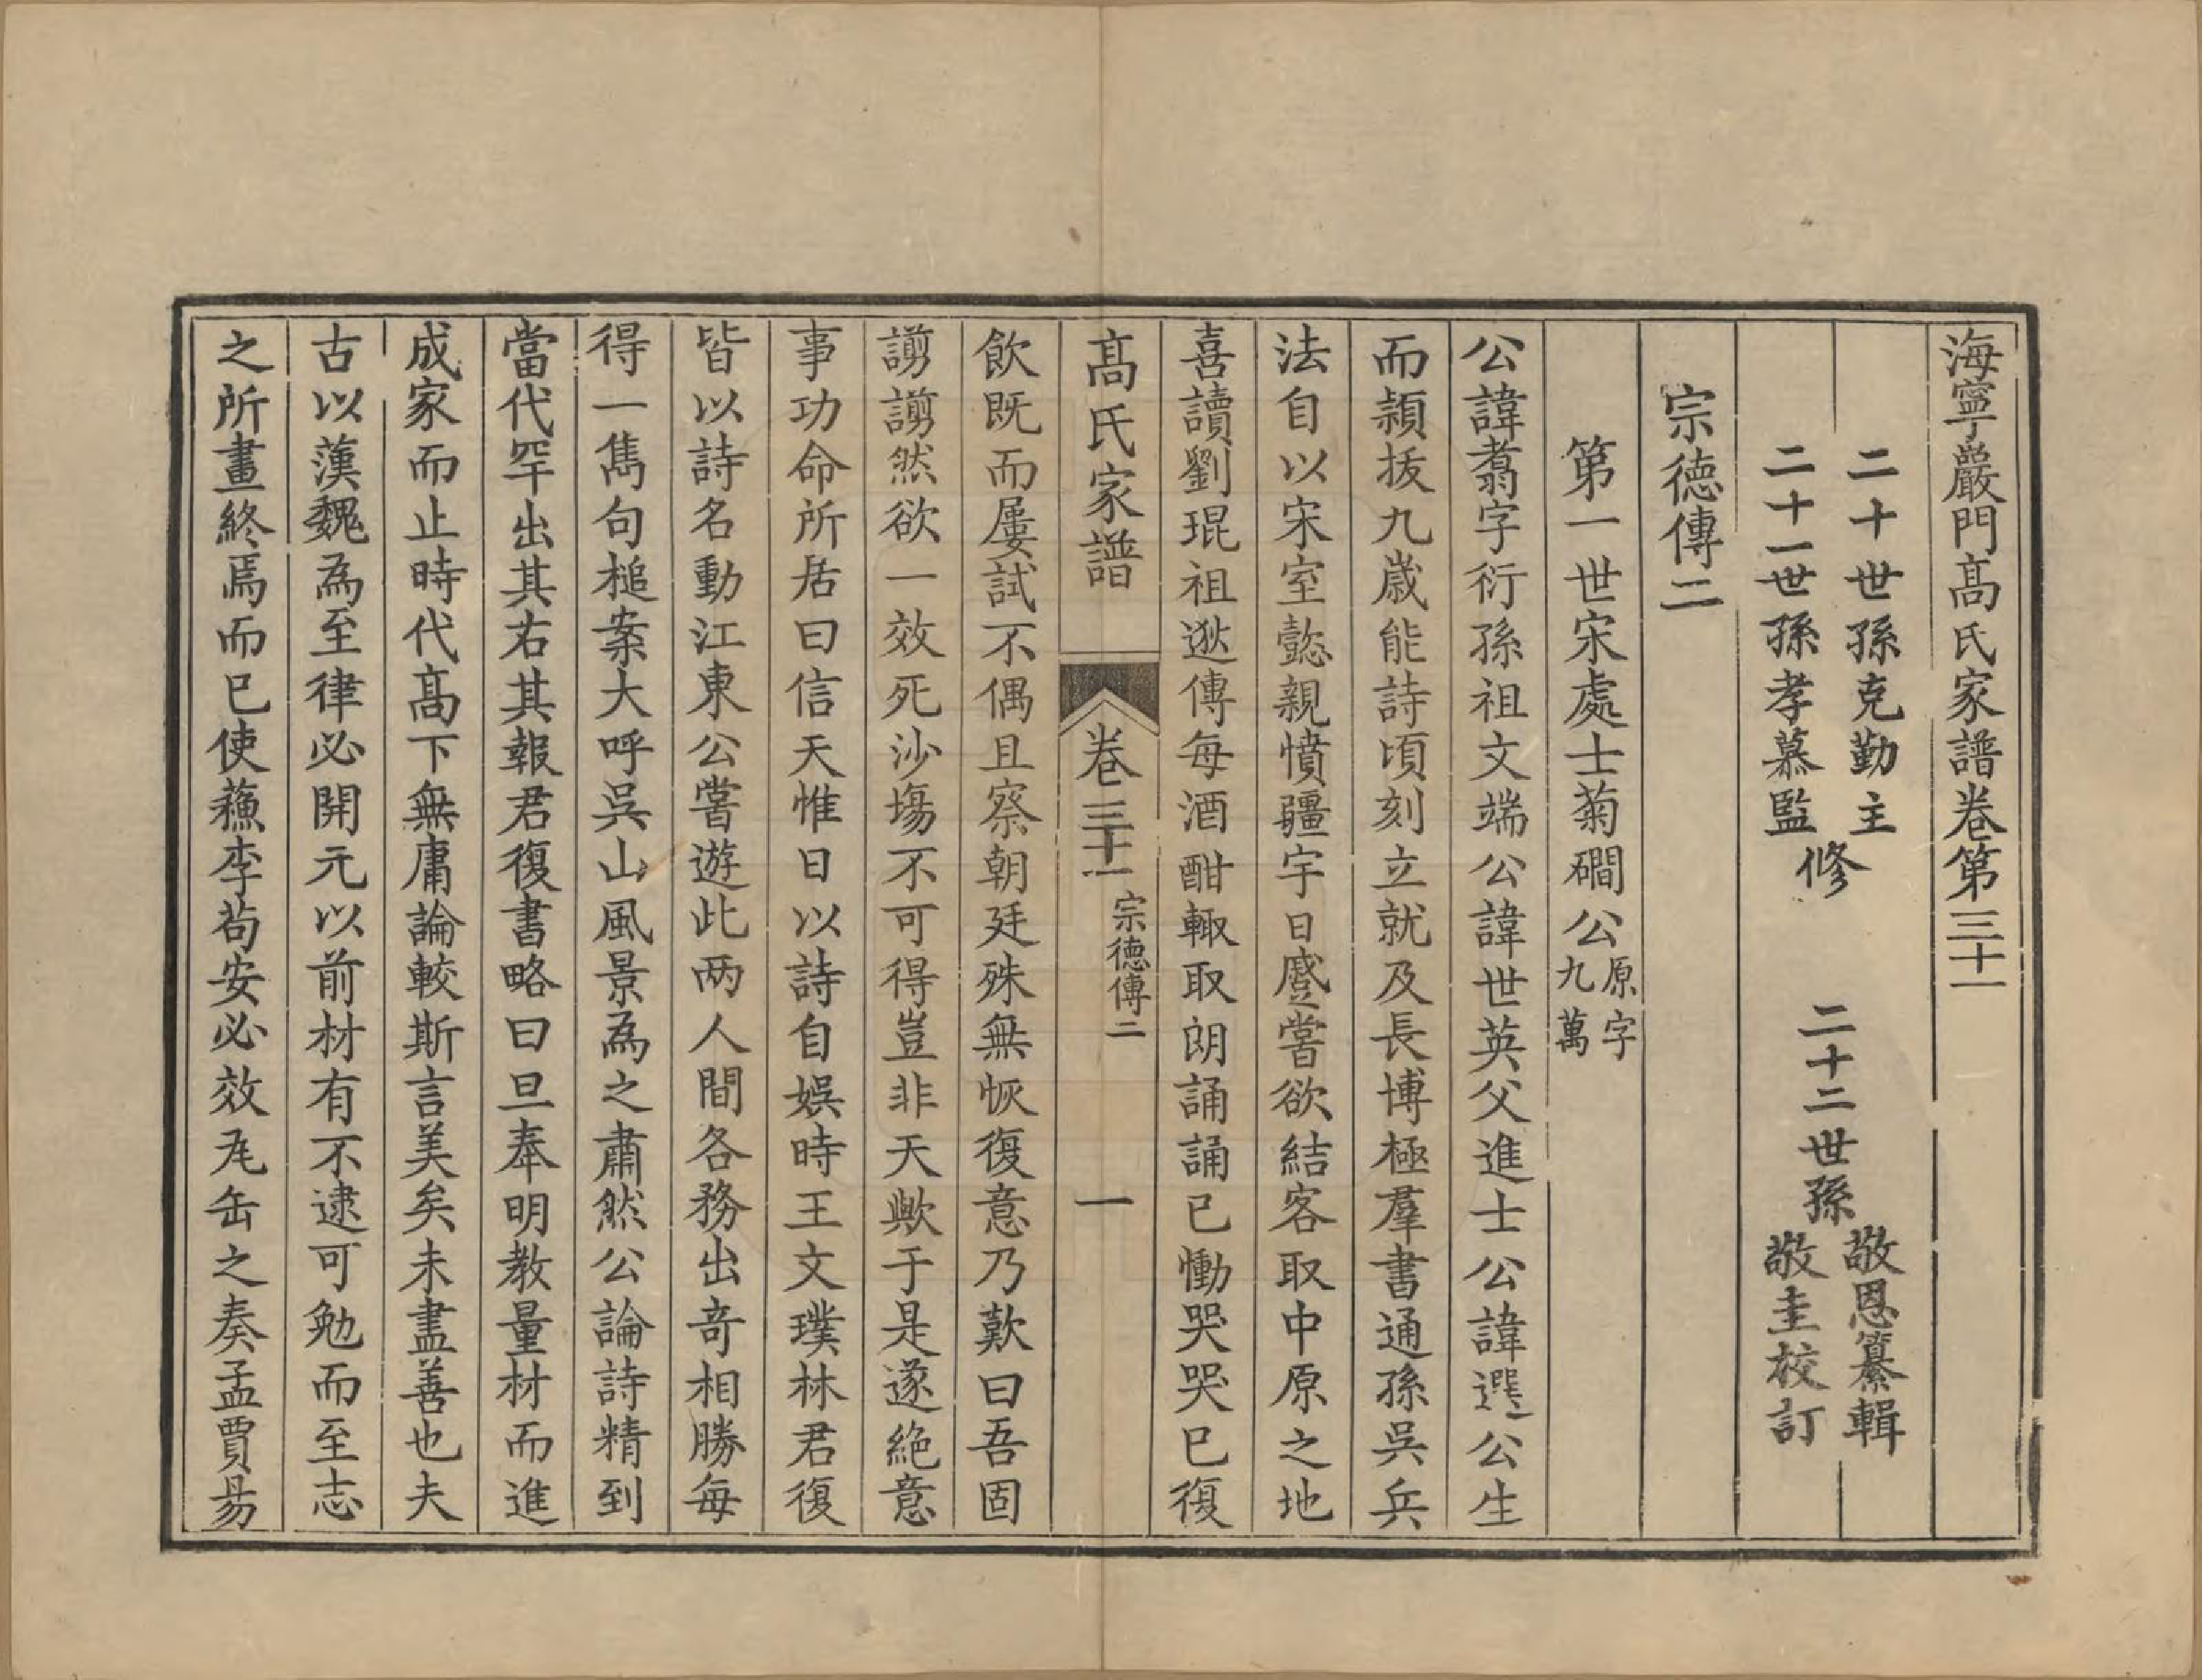 海寧嚴門髙氏家譜卷第三十一
二十世孫克勤主
二十一世孫孝慕監
修
二十二世孫
敬恩纂輯
敬圭校訂
宗德傳二
第一世宋處士菊磵公
原字
九萬
公諱翥字衍孫祖文端公諱世英父進士公諱選公生
而穎拔九歲能詩頃刻立就及長博極羣書通孫吳兵
法自以宋室懿親憤疆宇日蹙嘗欲結客取中原之地
喜讀劉琨祖逖傳每酒酣輙取朗誦誦已慟哭哭已復
髙氏家譜
卷三十一
宗德傳二
一
飲既而屢試不偶且察朝廷殊無恢復意乃歎曰吾固
謭謭然欲一效死沙塲不可得豈非天歟于是遂絶意
事功命所居曰信天惟日以詩自娱時王文璞林君復
皆以詩名動江東公嘗遊此两人間各務出竒相勝每
得一雋句槌案大呼吳山風景為之肅然公論詩精到
當代罕出其右其報君復書略曰旦奉明教量材而進
成家而止時代髙下無庸論較斯言美矣未盡善也夫
古以漢魏為至律必開元以前材有不逮可勉而至志
之所畫終焉而已使蘓李茍安必效𤬦缶之奏孟賈昜